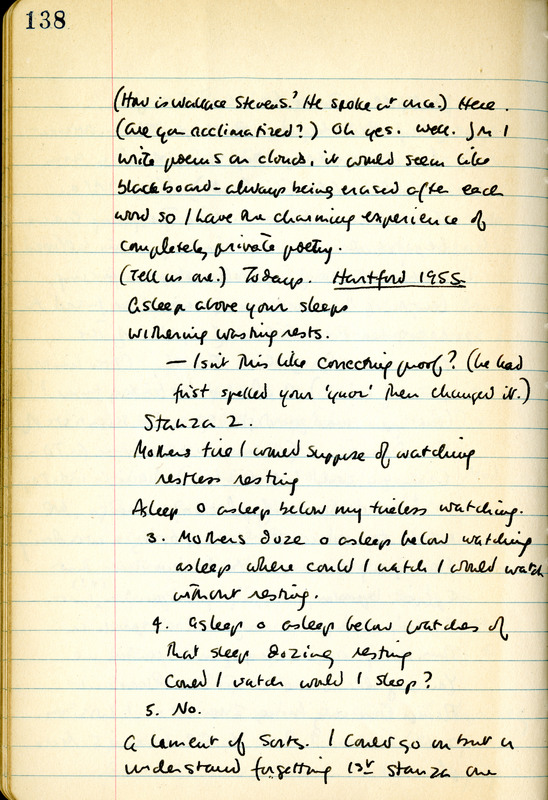 138
(How is Wallace Stevens? He spoke at once.) Here.
(Are you acclimatized?) Oh yes. Well. Jm I
write poems on clouds, it would seem like
blackboard - always being erased after each
word so I have the charming experience of
completely private poetry.
(Tell us one.) Todays. Hartford 1955.
Asleep above your sleeps
withering wasting rests.
— Isn't this like correcting proof? (he had
first spelled your 'yuor' then changed it.)
Stanza 2.
Mothers tire I would suppose of watching
restless resting
Asleep o asleep below my tireless watching.
3. Mothers doze o asleep below watching
asleep where could I watch I would watch
without resting.
4. Asleep o asleep below watches of
that sleep dozing resting
Could I watch would I sleep?
5. No.
A lament of sorts. I could go on but
understand forgetting 1st stanza